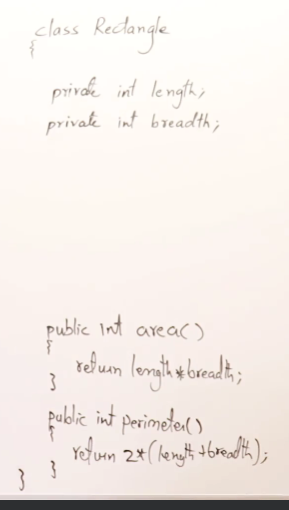 class Rectangle
{
private int length;
private int breadth;
public int area()
{
return length*breadth;
}
public int perimeter()
{
return 2*(length+breadth);
}
}